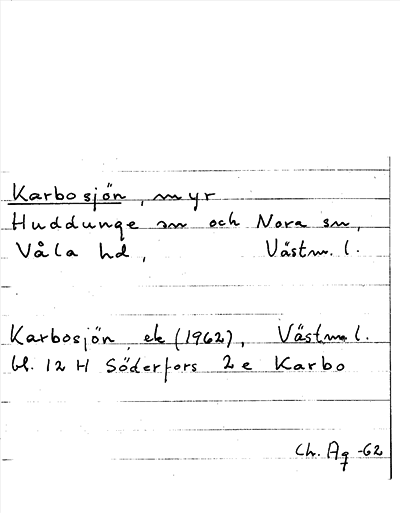 Karbosjön, myr
Huddunge sn och Nora sn,
Våla hd, Västm. l.
Karbosjön, ek (1962), Västm. l.
bl. 12 H Söderfors 2 e Karbo
Ch. Ag -62